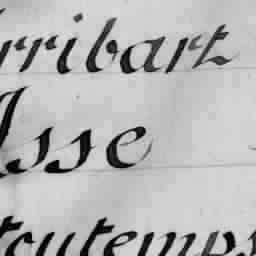 Arribart
Asse
toutemps